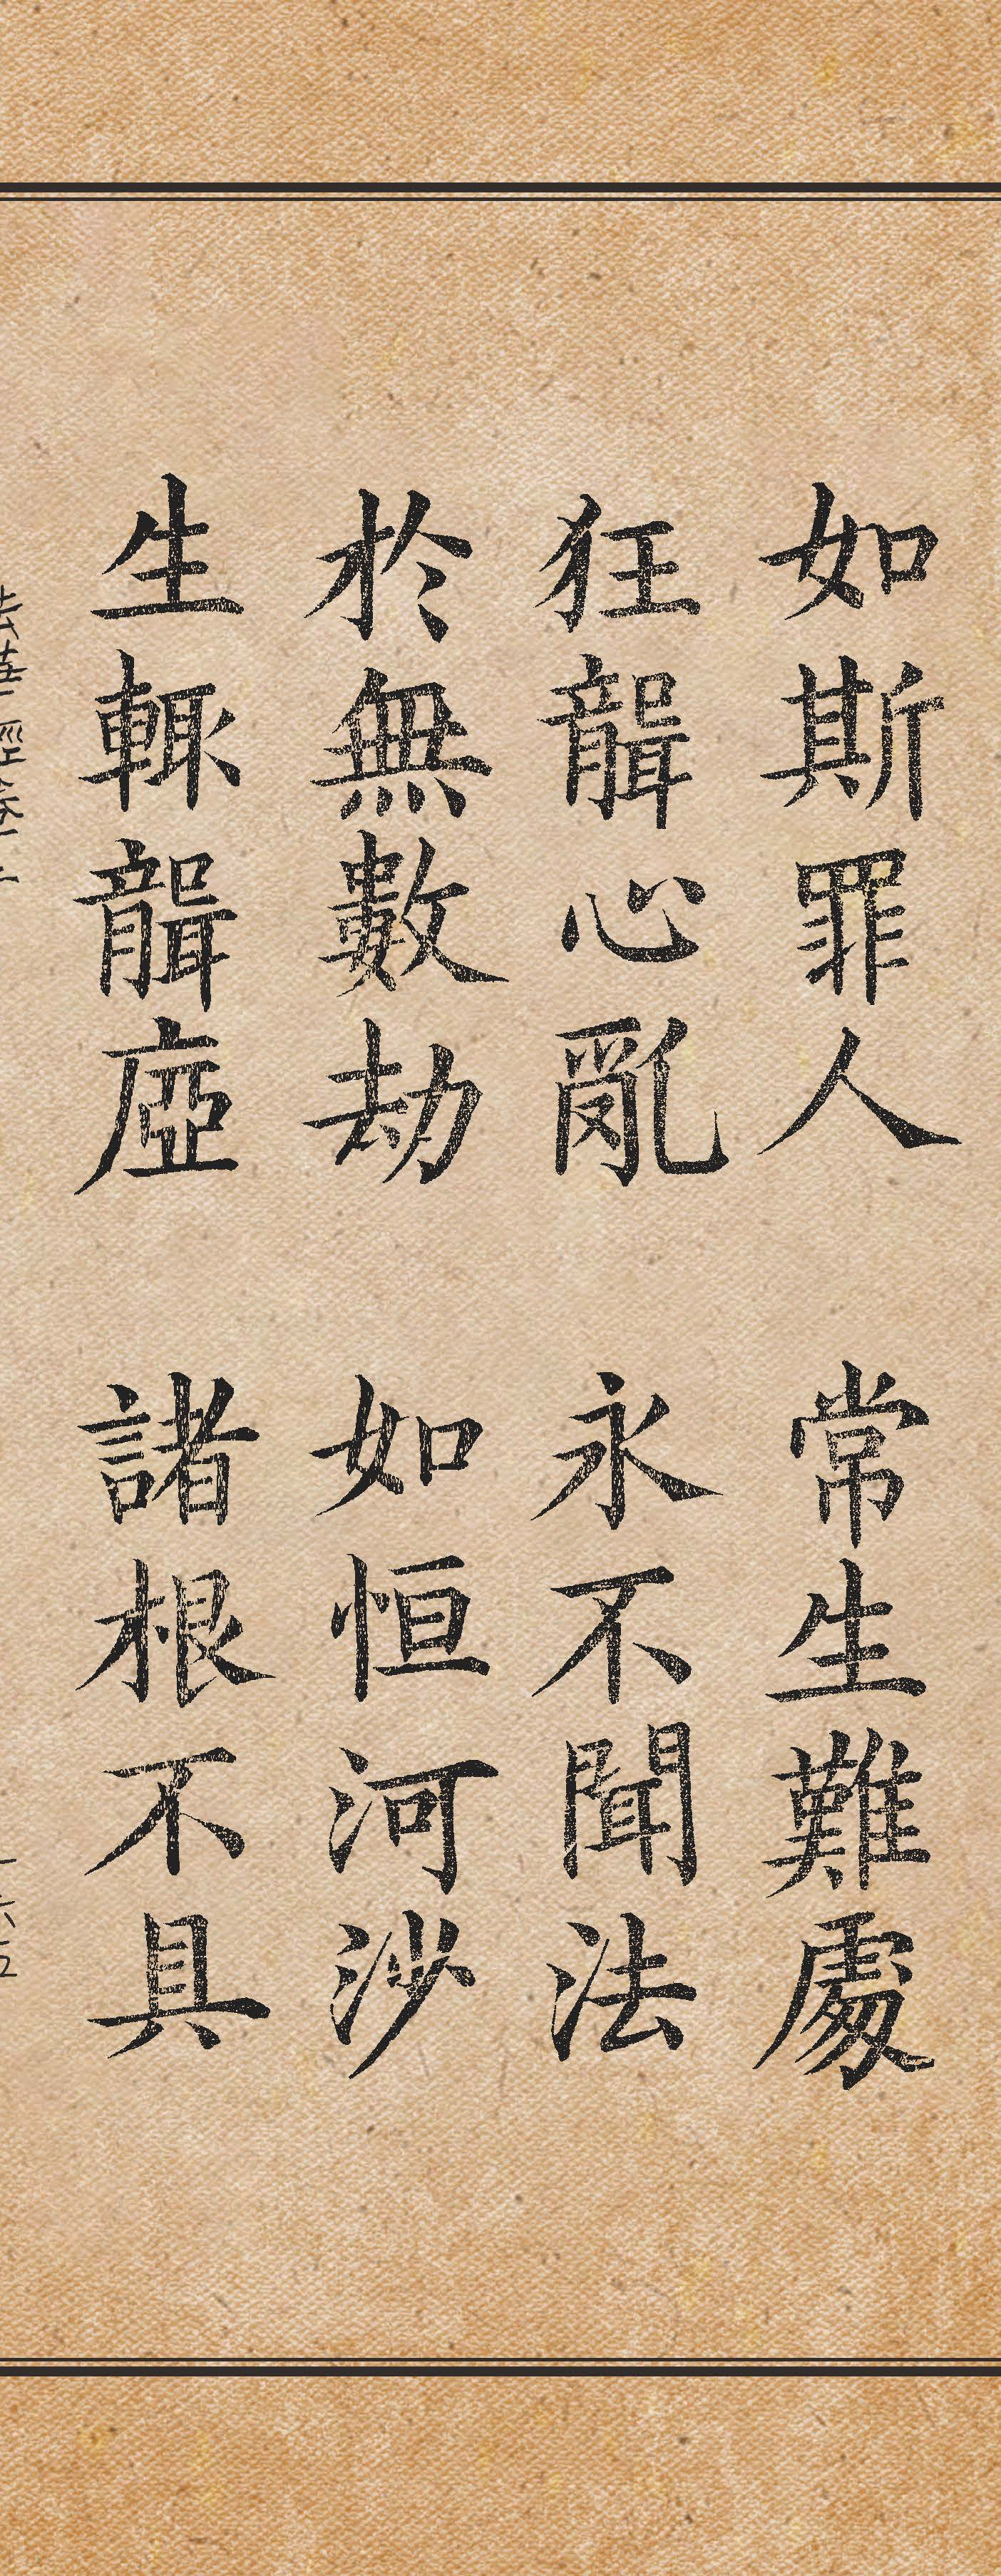 如斯罪人 常生難處
狂聾心亂 永不聞法
於無數劫 如恒河沙
生輒聾瘂 諸根不具